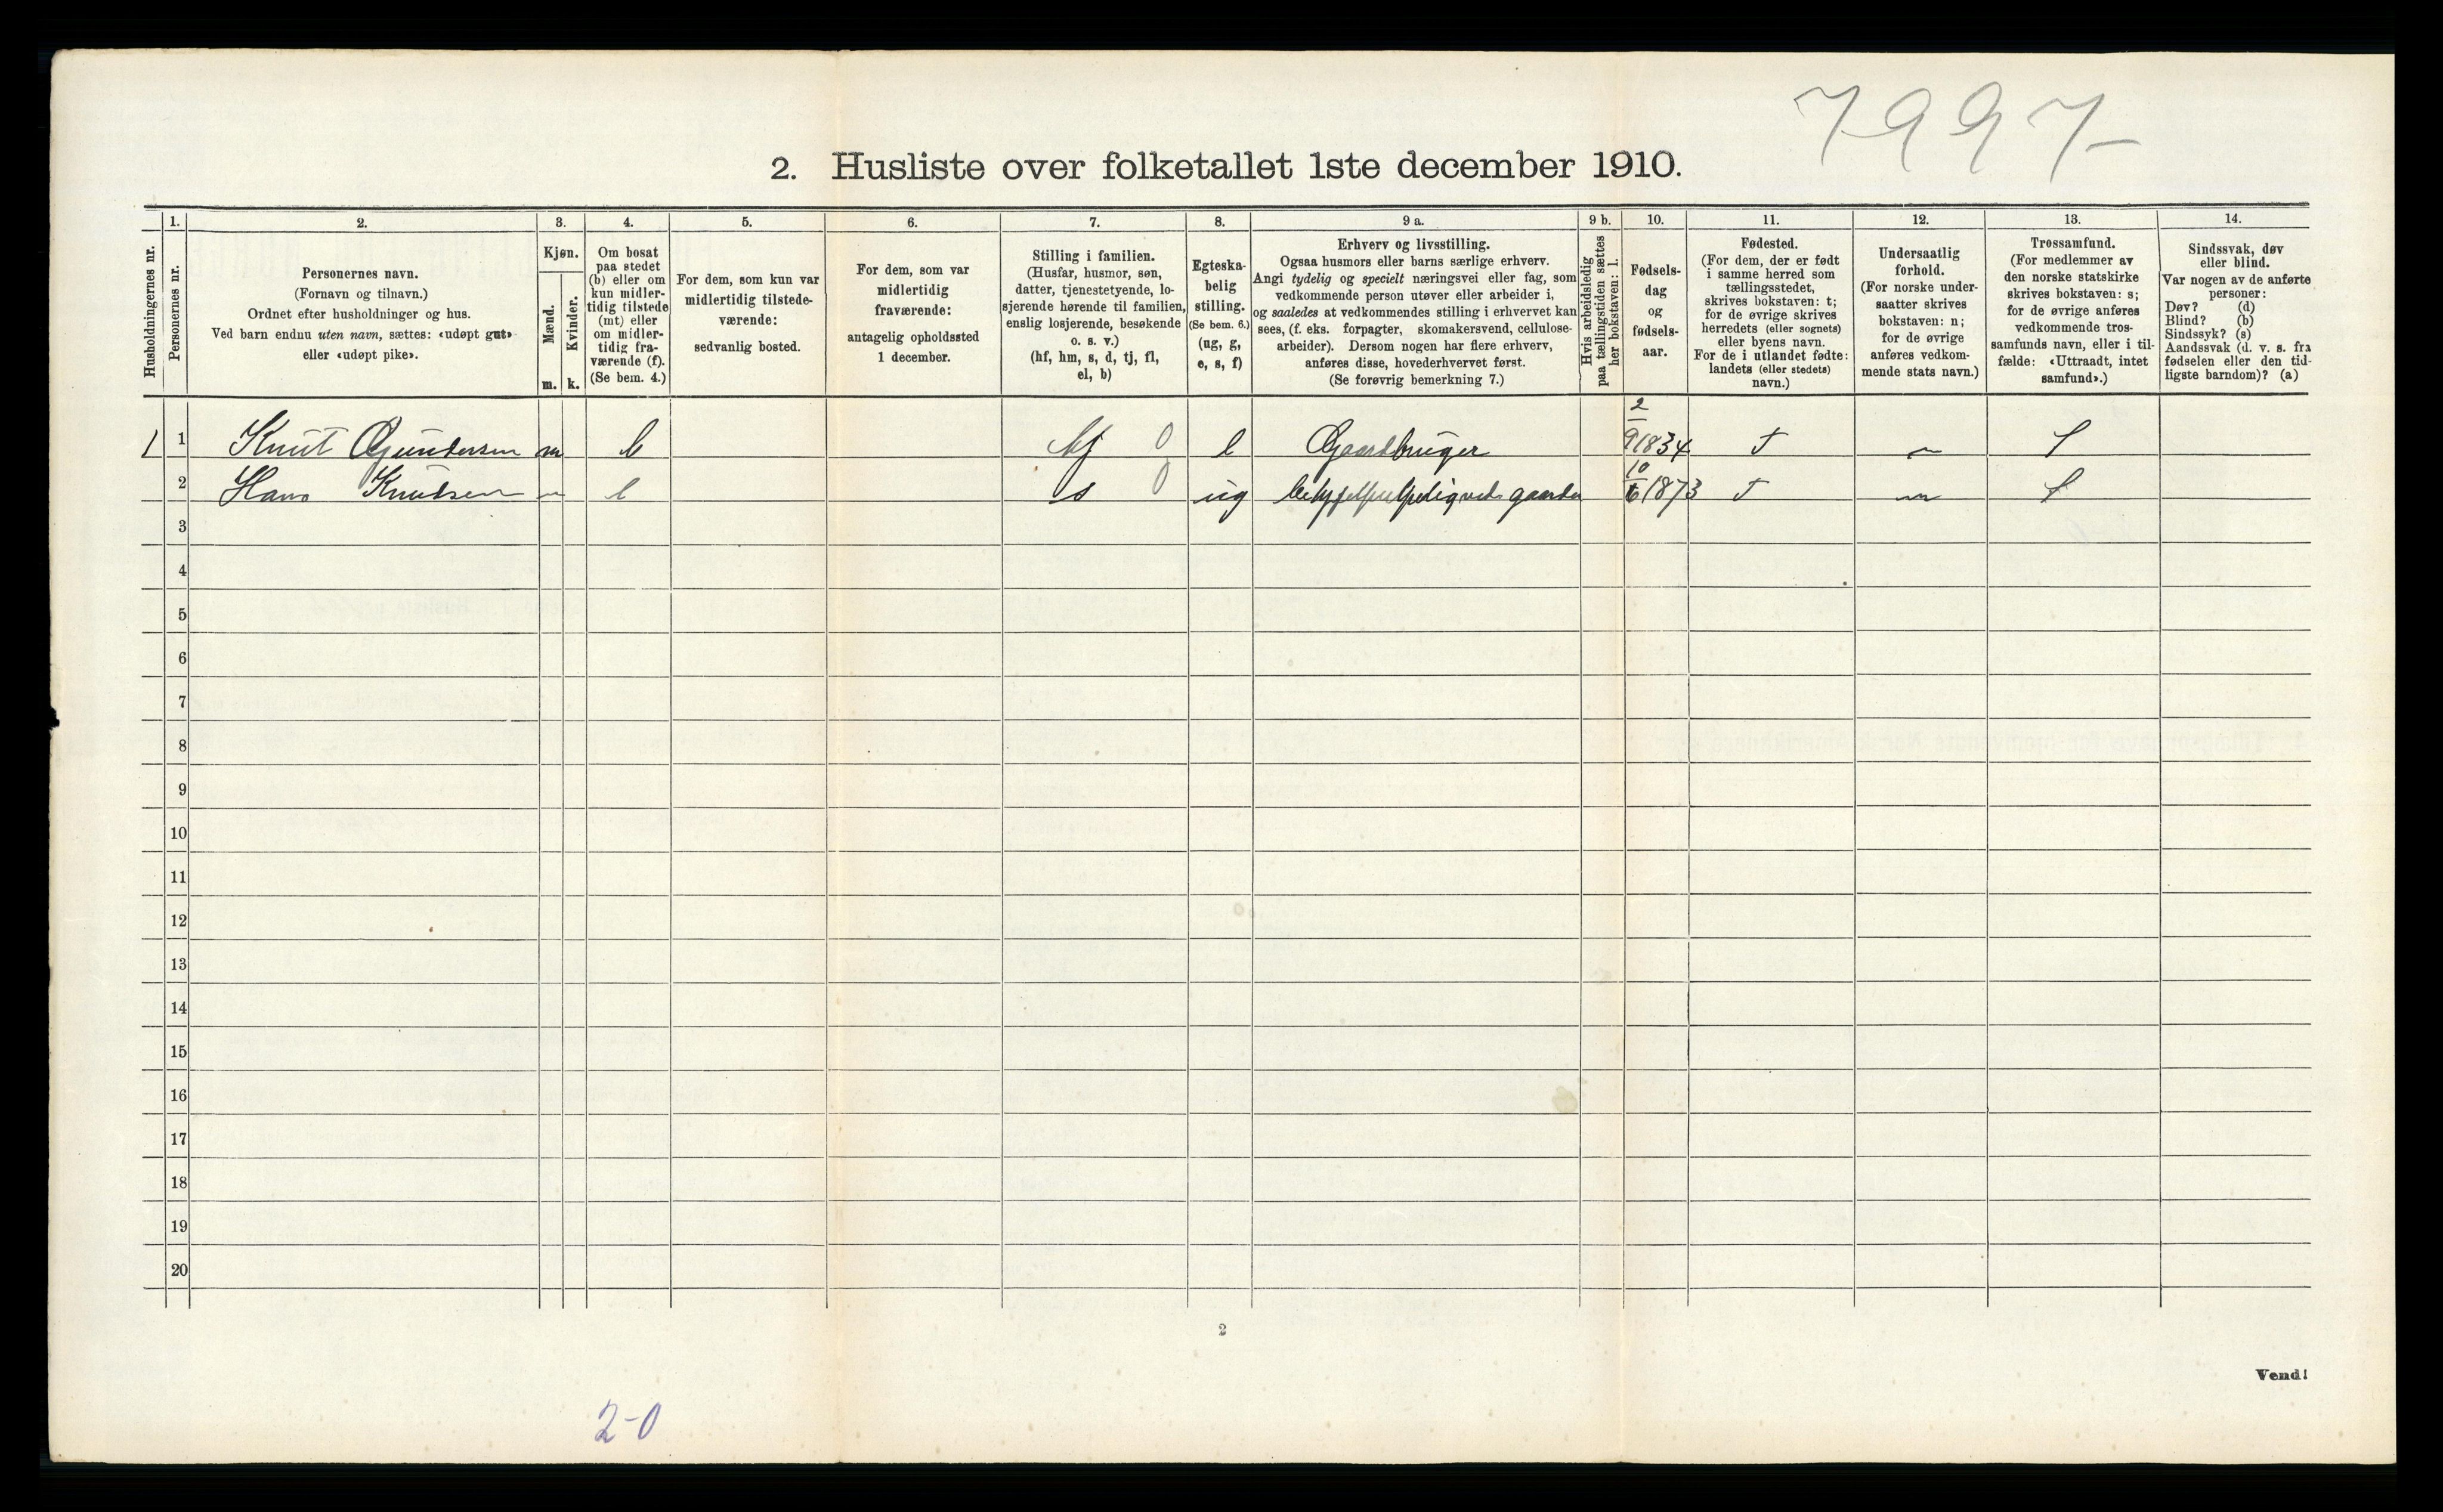 7997-
2. Husliste over folketallet 1ste december 1910.
Husholdningernes nr.
1.
Personernes nr.
2.
Personernes navn.
(Fornavn og tilnavn.)
Ordnet efter husholdninger og hus.
Ved barn endnu uten navn, sættes: «udøpt gut»
eller «udøpt pike».
3.
Kjøn.
Mænd.
Kvinder.
m. k.
4.
Om bosat
paa stedet
(b) eller om
kun midler-
tidig tilstede
(mt) eller
om midler-
tidig fra-
værende (f).
(Se bem. 4.)
5.
For dem, som kun var
midlertidig tilstede-
værende:
sedvanlig bosted.
6.
For dem, som var
midlertidig
fraværende:
antagelig opholdssted
1 december.
7.
Stilling i familien.
(Husfar, husmor, søn,
datter, tjenestetyende, lo-
sjerende hørende til familien,
enslig losjerende, besøkende
o. s. v.)
(hf, hm, s, d, tj, fl,
el, b)
8.
Egteska-
belig
stilling.
(Se bem. 6.)
(ug, g,
e, s, f)
9 a.
Erhverv og livsstilling.
Ogsaa husmors eller barns særlige erhverv.
Angi tydelig og specielt næringsvei eller fag, som
vedkommende person utøver eller arbeider i,
og saaledes at vedkommendes stilling i erhvervet kan
sees, (f. eks. forpagter, skomakersvend, cellulose-
arbeider). Dersom nogen har flere erhverv,
anføres disse, hovederhvervet først.
(Se forøvrig bemerkning 7.)
9 b.
Hvis arbeidsledig
paa tællingstiden sættes
her bokstaven: l.
10.
Fødsels-
dag
og
fødsels-
aar.
11.
Fødested.
(For dem, der er født
i samme herred som
tællingsstedet,
skrives bokstaven: t;
for de øvrige skrives
herredets (eller sognets)
eller byens navn.
For de i utlandet fødte:
landets (eller stedets)
navn.)
12.
Undersaatlig
forhold.
(For norske under-
saatter skrives
bokstaven: n;
for de øvrige
anføres vedkom-
mende stats navn.)
13.
Trossamfund.
(For medlemmer av
den norske statskirke
skrives bokstaven: s;
for de øvrige anføres
vedkommende tros-
samfunds navn, eller i til-
fælde: «Uttraadt, intet
samfund».)
14.
Sindssvak, døv
eller blind.
Var nogen av de anførte
personer:
Døv? (d)
Blind? (b)
Sindssyk? (s)
Aandssvak (d. v. s. fra
fødselen eller den tid-
ligste barndom)? (a)
1 1 Knut Gundersen m b hf 0 e Gaardbruger 2/9 1834 t n S
2 Hans Knudsen m b s 0 ug 10/6 1873 t n S
3
4
5
6
7
8
9
10
11
12
13
14
15
16
17
18
19
20
2
Vend!
2-0